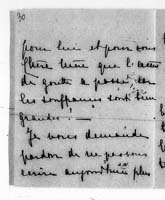 30
pour lui et pour vous
chère tante que l'accès
de goutte a passé, car
les souffrances sont bien
grandes !
Je vous demande
pardon de ne pas vous
écrire aujourd'hui plus